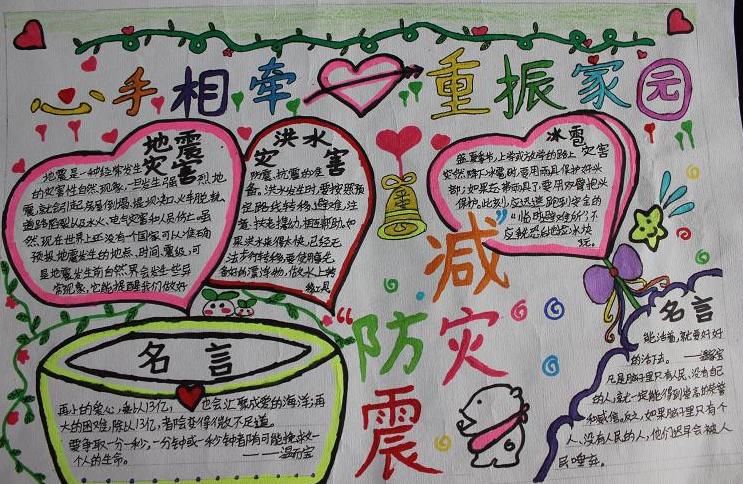 心手相牵 重振家园
地震灾害
地震是一种经常发生
的灾害性自然现象,一旦发生强烈地
震,就会引起房屋倒塌、堤坝如、火车脱轨、
道路断裂以及水火、电气灾害和人员伤亡。虽
然,现在世界上还没有一个国家可以准确
预报地震发生的地点、时间、震级,可
是地震发生前自然界会发生些异
常现象,它能提醒我们做好
洪水灾害
防震、抗震的准
备。洪水发生时,要按照预
定路线转移、避难,注
意扶老携幼、相互帮助。如
果洪水来得太快,已经无
法步行转移,要使用事先
备好的漂浮物,做水上转
移工具
冰雹灾害
盛夏季节,上学或放学的路上
突然降下冰雹时,要用雨具保护好头
部;如果不带雨具,要用双臂抱头
保护。此刻,应迅速跑到安全的
“临时避难所”,不
应就恐台地捡冰块
玩。
“防震
减灾
名言
再小的爱心,乘以13亿,也会汇聚成爱的海洋;再
大的困难,除以13亿,都会变得微不足道。
要争取一分一秒,一分钟或一秒钟都有可能挽救一
个人的生命。
——温家宝
名言
能活着,就要好好
的活下去。——温家宝
凡是脑子里只有人民、没有自己
的人,就一定能得到崇高的荣誉
和威信。反之,如果脑子里只有个
人、没有人民的人,他们迟早会被人
民唾弃。